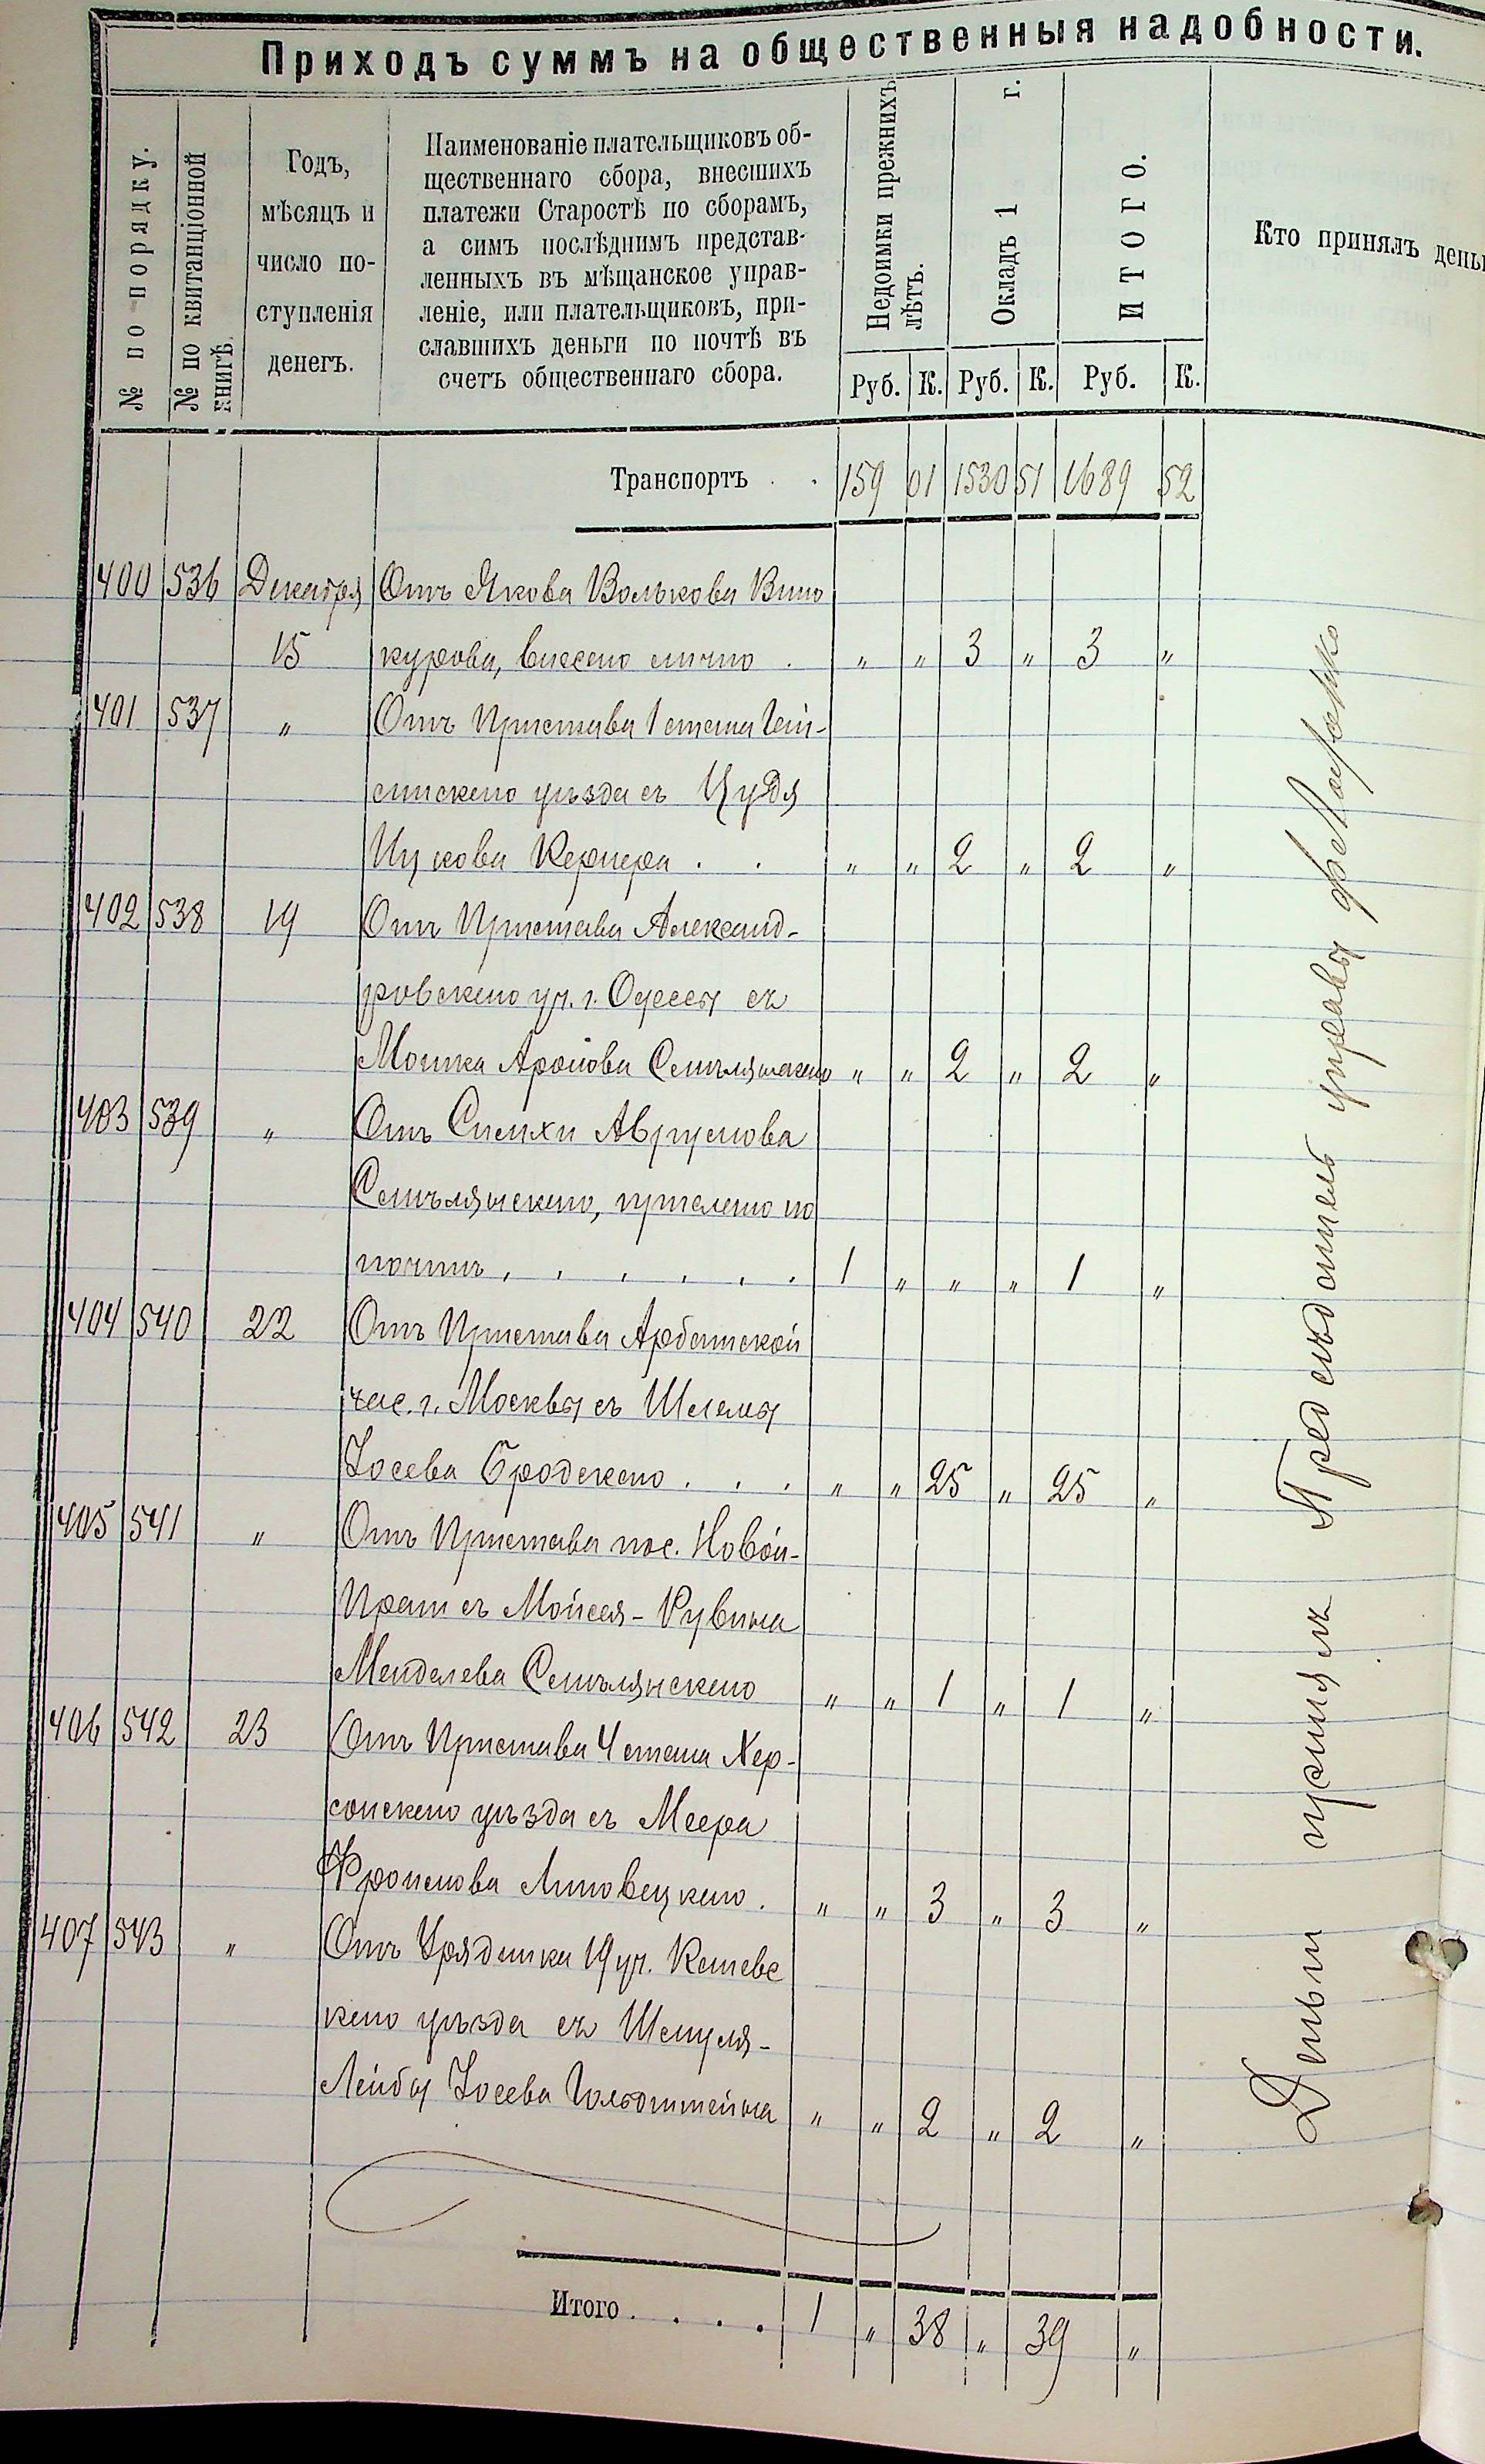 Приходъ суммъ на общественныя надобности.
№ по порядку.
№ по квитанціонной книгѣ.
Годъ,
мѣсяцъ и
число по-
ступленія
денегъ.
Наименованіе плательщиковъ об-
щественнаго сбора, внесшихъ
платежи Старостѣ по сборамъ,
а симъ послѣднимъ представ-
ленныхъ въ мѣщанское управ-
леніе, или плательщиковъ, при-
славшихъ деньги по почтѣ въ
счетъ общественнаго сбора.
Недоимки прежнихъ
лѣтъ.
Окладъ 1 г.
ИТОГО.
Кто принялъ день
Руб. К. Руб. К. Руб. К.
Транспортъ . . 159 01 1530 51 1689 52
400 536 Декабря Отъ Якова Волькова Вино
15 курова, внесено лично . „ „ 3 „ 3 „
401 537 „ Отъ Пристава 1 стана
уѣзда съ Цудя
Ицкова Кернера . . „ „ 2 „ 2 „
402 538 19 Отъ Пристава Александ-
ровскаго уч. г. Одессы съ
Мошка Аронова „ „ 2 „ 2 „
403 539 „ Отъ Симхи Аврумова
по
почтѣ . . . . . . 1 „ „ „ 1 „
404 540 22 Отъ Пристава Арбатской
час. г. Москвы съ Шлемы
Іосева Бродскаго . . . „ „ 25 „ 25 „
405 541 „ Отъ Пристава пос. Новой-
Праги съ Мойсея-Рувина
Менделева „ „ 1 „ 1 „
406 542 23 Отъ Пристава 4 стана Хер-
сонскаго уѣзда съ Меера
Фроимова Липовецкаго . „ „ 3 „ 3 „
407 543 „ Отъ Урядника 19 уч.
каго уѣзда съ Шмуля-
Лейбы Іосева Гольдштейна „ „ 2 „ 2 „
Итого . . . . 1 „ 38 „ 39 „
Деньги принялъ Предсѣдатель управы